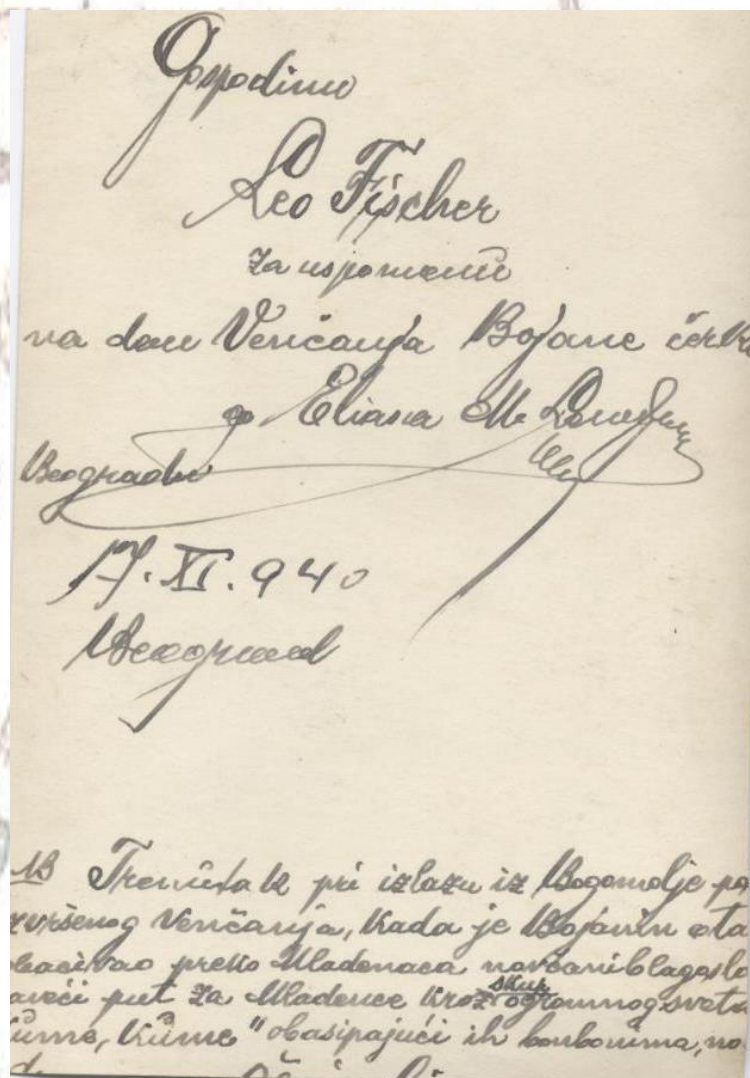 Gospodinu
Leo Fischer
Za uspomenu
na dan Venčanja Bojane ćerke
go Eliasa M.
Beograda
17. XI. 940
Beograd
NB Trenutak pri izlazu iz Bogomolje po
zvršenog Venčanja, kada je Bojanin ota
bacivao preko Mladenaca novčani blagoslo
aveći put za Mladence kroz skup ogromnog sveta
kume, kume" obasipajući ih bonbonima, no